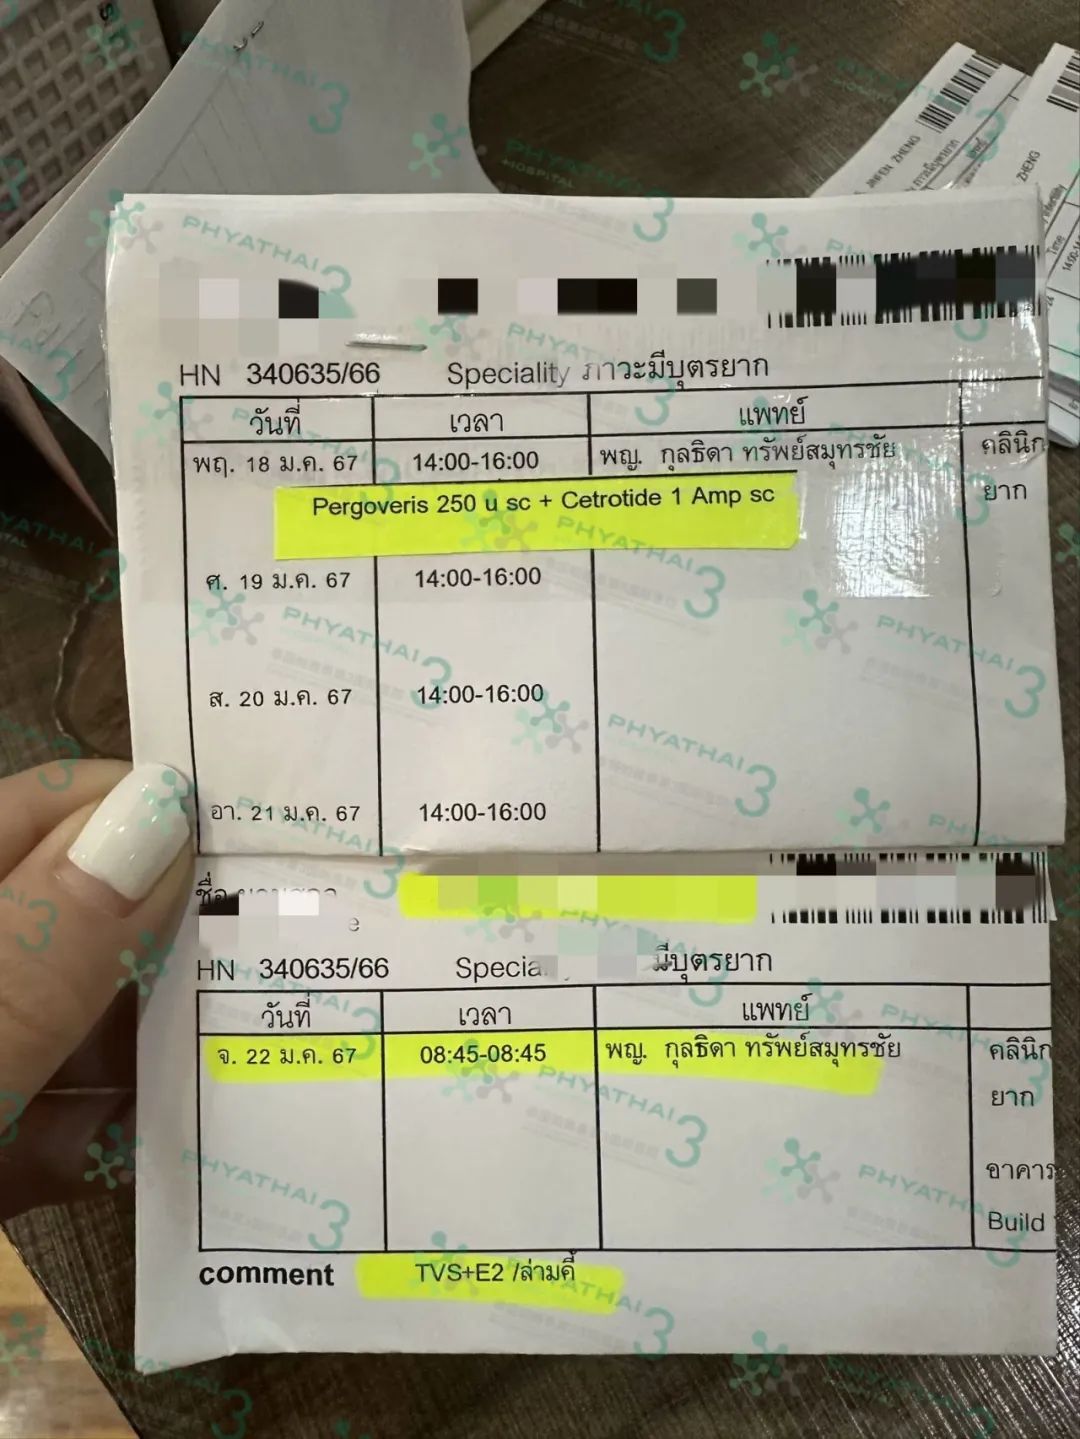 JINFEN ZHENG
ZHENG
HN 340635/66 Speciality ภาวะมีบุตรยาก
วันที่ เวลา แพทย์
พฤ. 18 ม.ค. 67 14:00-16:00 พญ. กุลธิดา ทรัพย์สมุทรชัย คลินิก
ยาก
Pergoveris 250 u sc + Cetrotide 1 Amp sc
ศ. 19 ม.ค. 67 14:00-16:00
ส. 20 ม.ค. 67 14:00-16:00
อา. 21 ม.ค. 67 14:00-16:00
ชื่อ
HN 340635/66 Specia มีบุตรยาก
วันที่ เวลา แพทย์
จ. 22 ม.ค. 67 08:45-08:45 พญ. กุลธิดา ทรัพย์สมุทรชัย คลินิก
ยาก
อาคาร
Build
comment TVS+E2 /ล่ามคี้
PHYATHAI 3
HOSPITAL